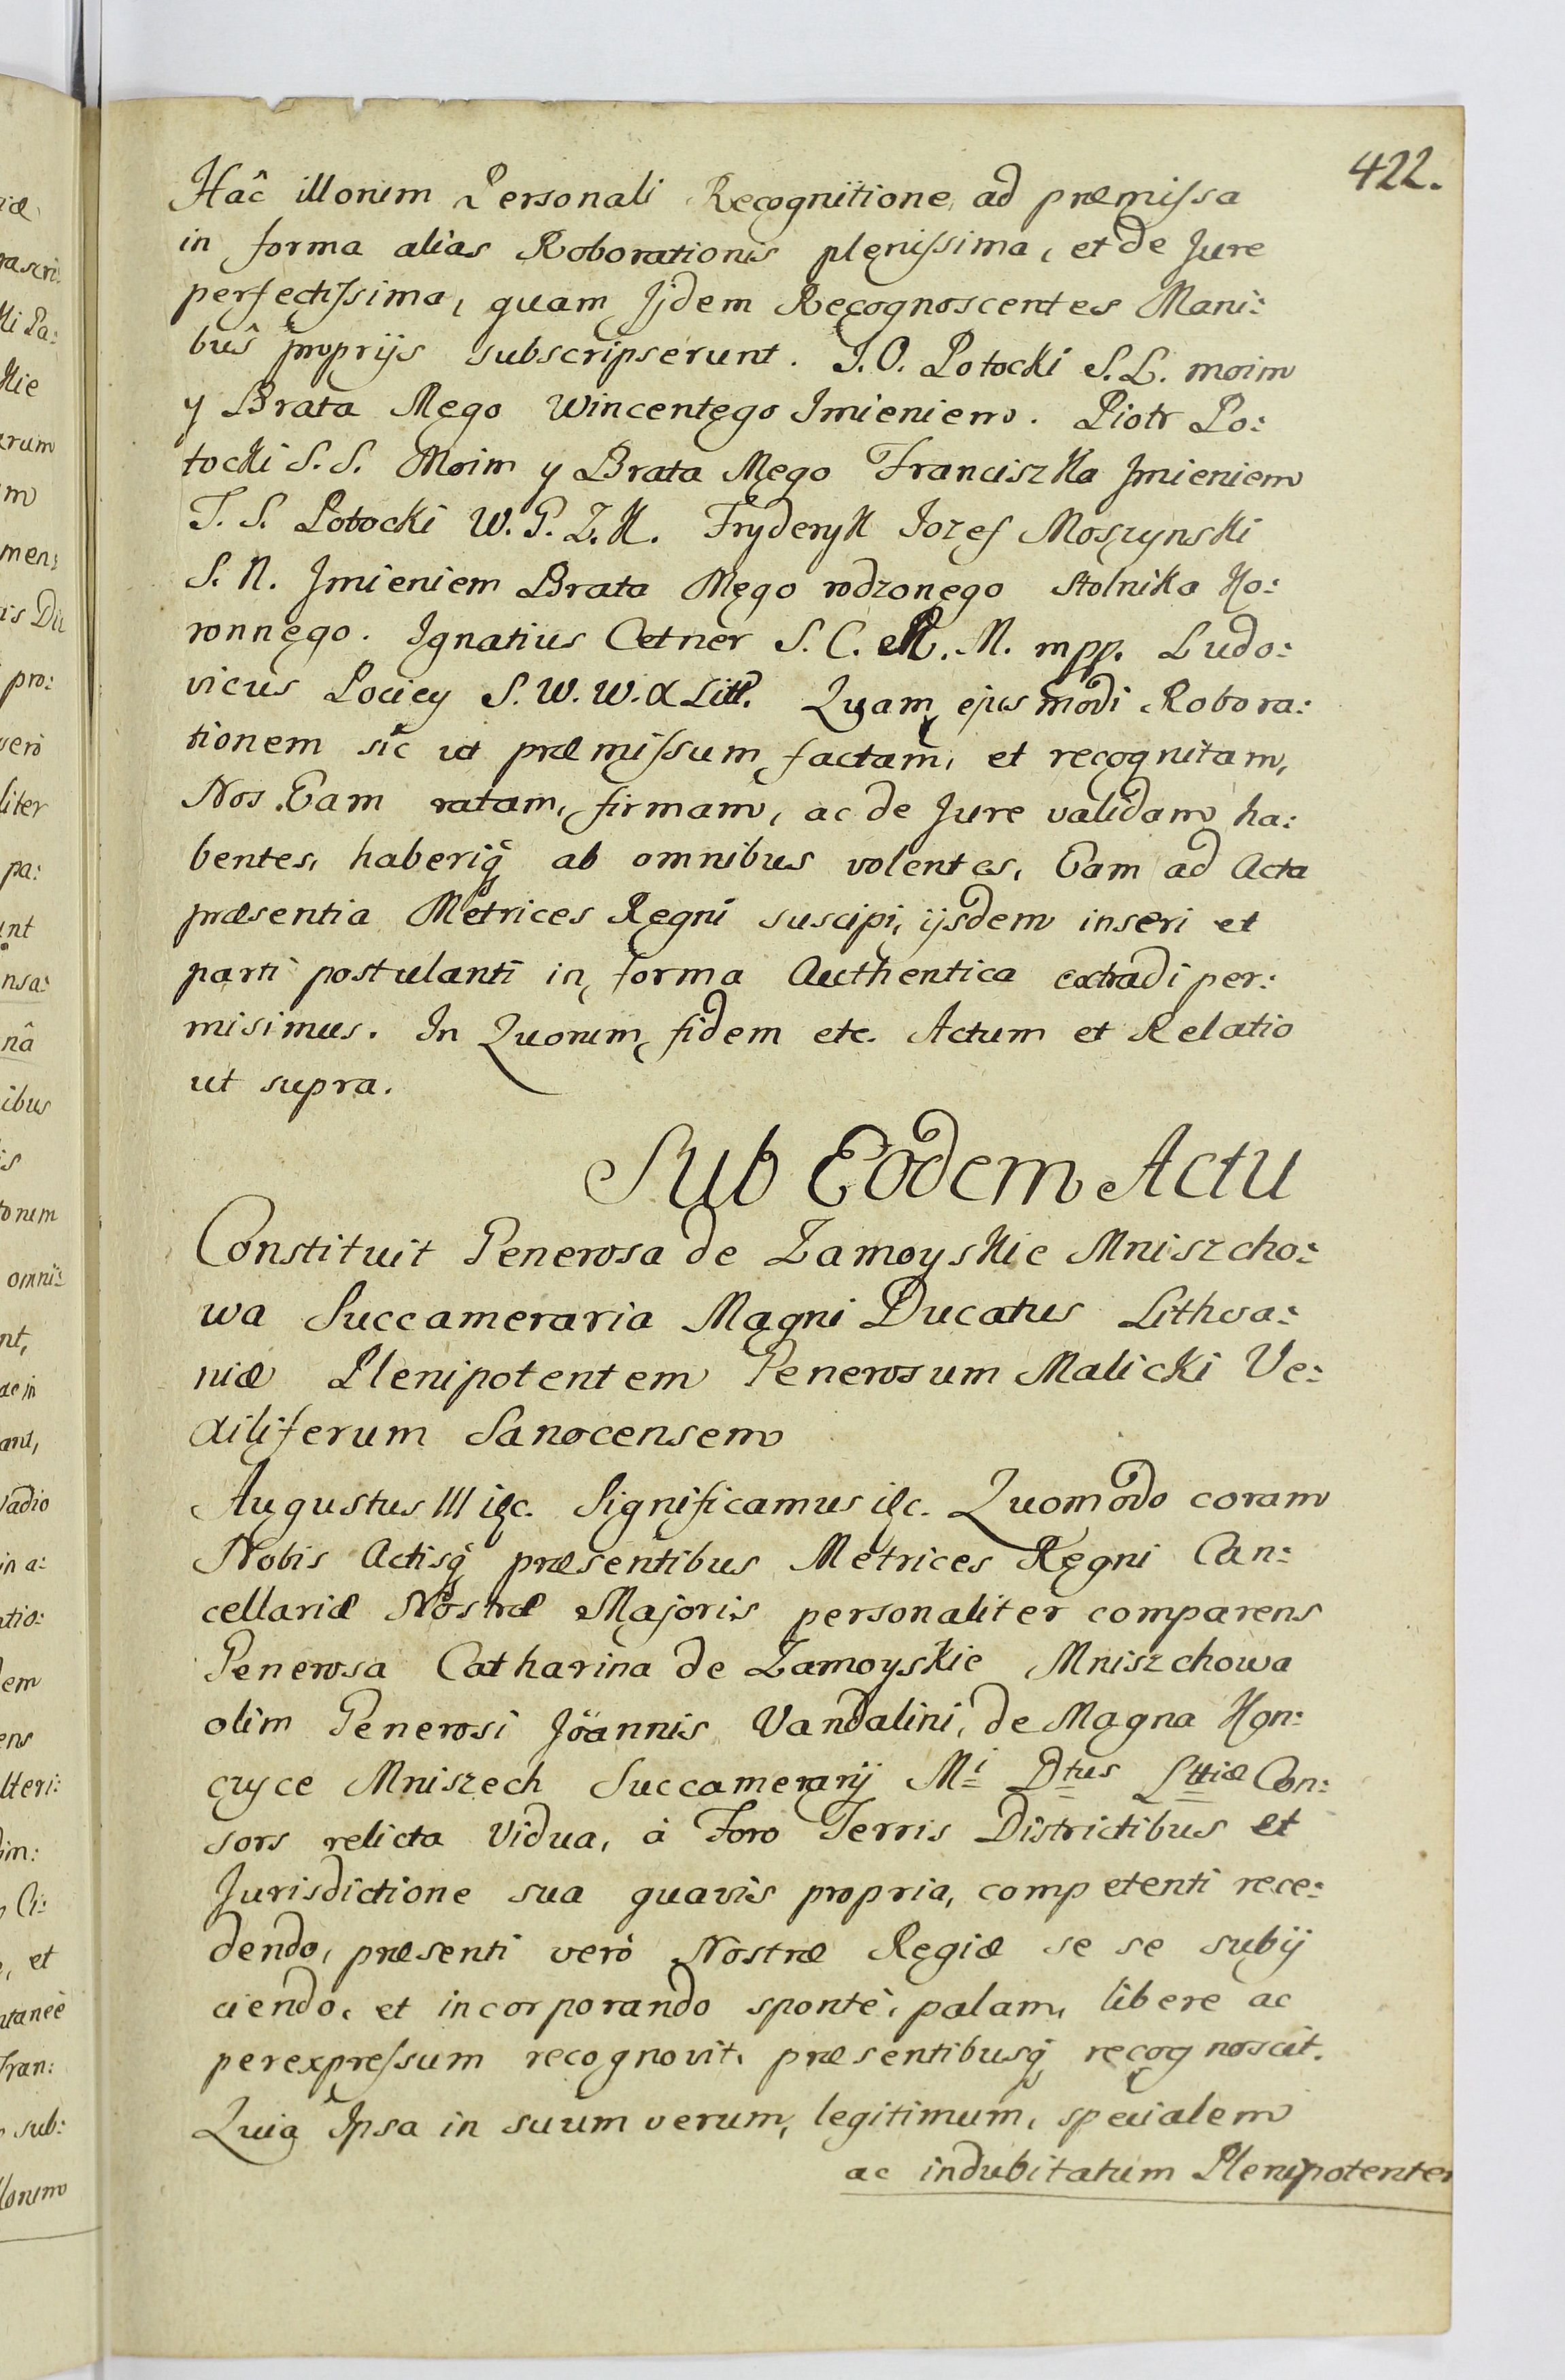 422.
Hâc illorum Personali Recognitione ad præmissa
in forma alias Roborationis plenissima, et de Jure
perfectissima, quam Jjdem Recognoscentes Mani:
bus proprijs subscripserunt. I. O. Potocki S. L. moim
y Brata Mego Wincentego Jmieniem. Piotr Po:
tocki S. S. Moim y Brata Mego Franciszka Jmieniem
T. S. Potocki W. P. Z. K. Fryderyk Iozef Moszynski
S. N. Jmieniem Brata Mego rodzonego Stolnika Ko:
ronnego. Ignatius Cetner S. C. R. M. mpp. Ludo:
vicus Pociey S. W. W. X Litt. Quam ejusmodi Robora:
tionem sic ut præmissum factam, et recognitam,
Nos Eam ratam, firmam, ac de Jure validam ha:
bentes, haberiq ab omnibus volentes, Eam ad Acta
præsentia Metrices Regni suscipi, ijsdem inseri et
parti postulanti in forma Authentica extradi per:
misimus. In Quorum fidem etc. Actum et Relatio
ut supra.
Sub Eodem Actu
Constituit Generosa de Zamoyskie Mniszcho:
wa Succameraria Magni Ducatus Lithva:
niæ Plenipotentem Generosum Malicki Ve:
xiliferum Sanocensem
Augustus III etc. Significamus etc. Quomodo coram
Nobis Actisq præsentibus Metrices Regni Can:
cellariæ Nostræ Majoris personaliter comparens
Generosa Catharina de Zamoyskie Mniszchowa
olim Generosi Jöannis Vandalini, de Magna Kon:
czyce Mniszech Succamerarij Mi Dtus Lttiæ Con:
sors relicta Vidua, à Foro Terris Districtibus et
Jurisdictione sua quavis propria, competenti rece:
dendo, præsenti verò Nostræ Regiæ se se subij
ciendo, et incorporando spontè, palam, libere ac
perexpressum recognovit, præsentibusq recognoscit.
Quia Ipsa in suum verum, legitimum, specialem
ac indubitatum Plenipotentem